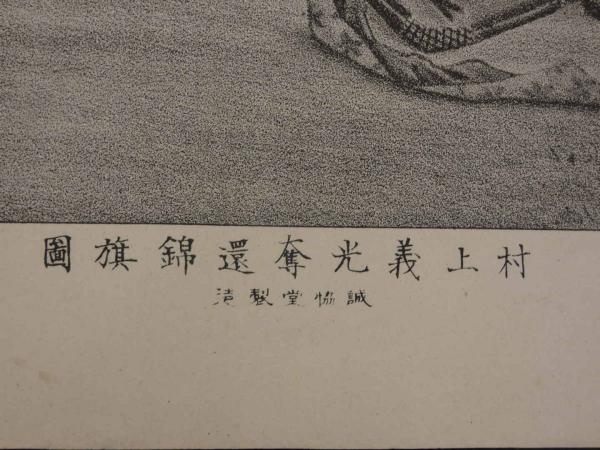 村上義光奪還錦旗圖
誠協堂製